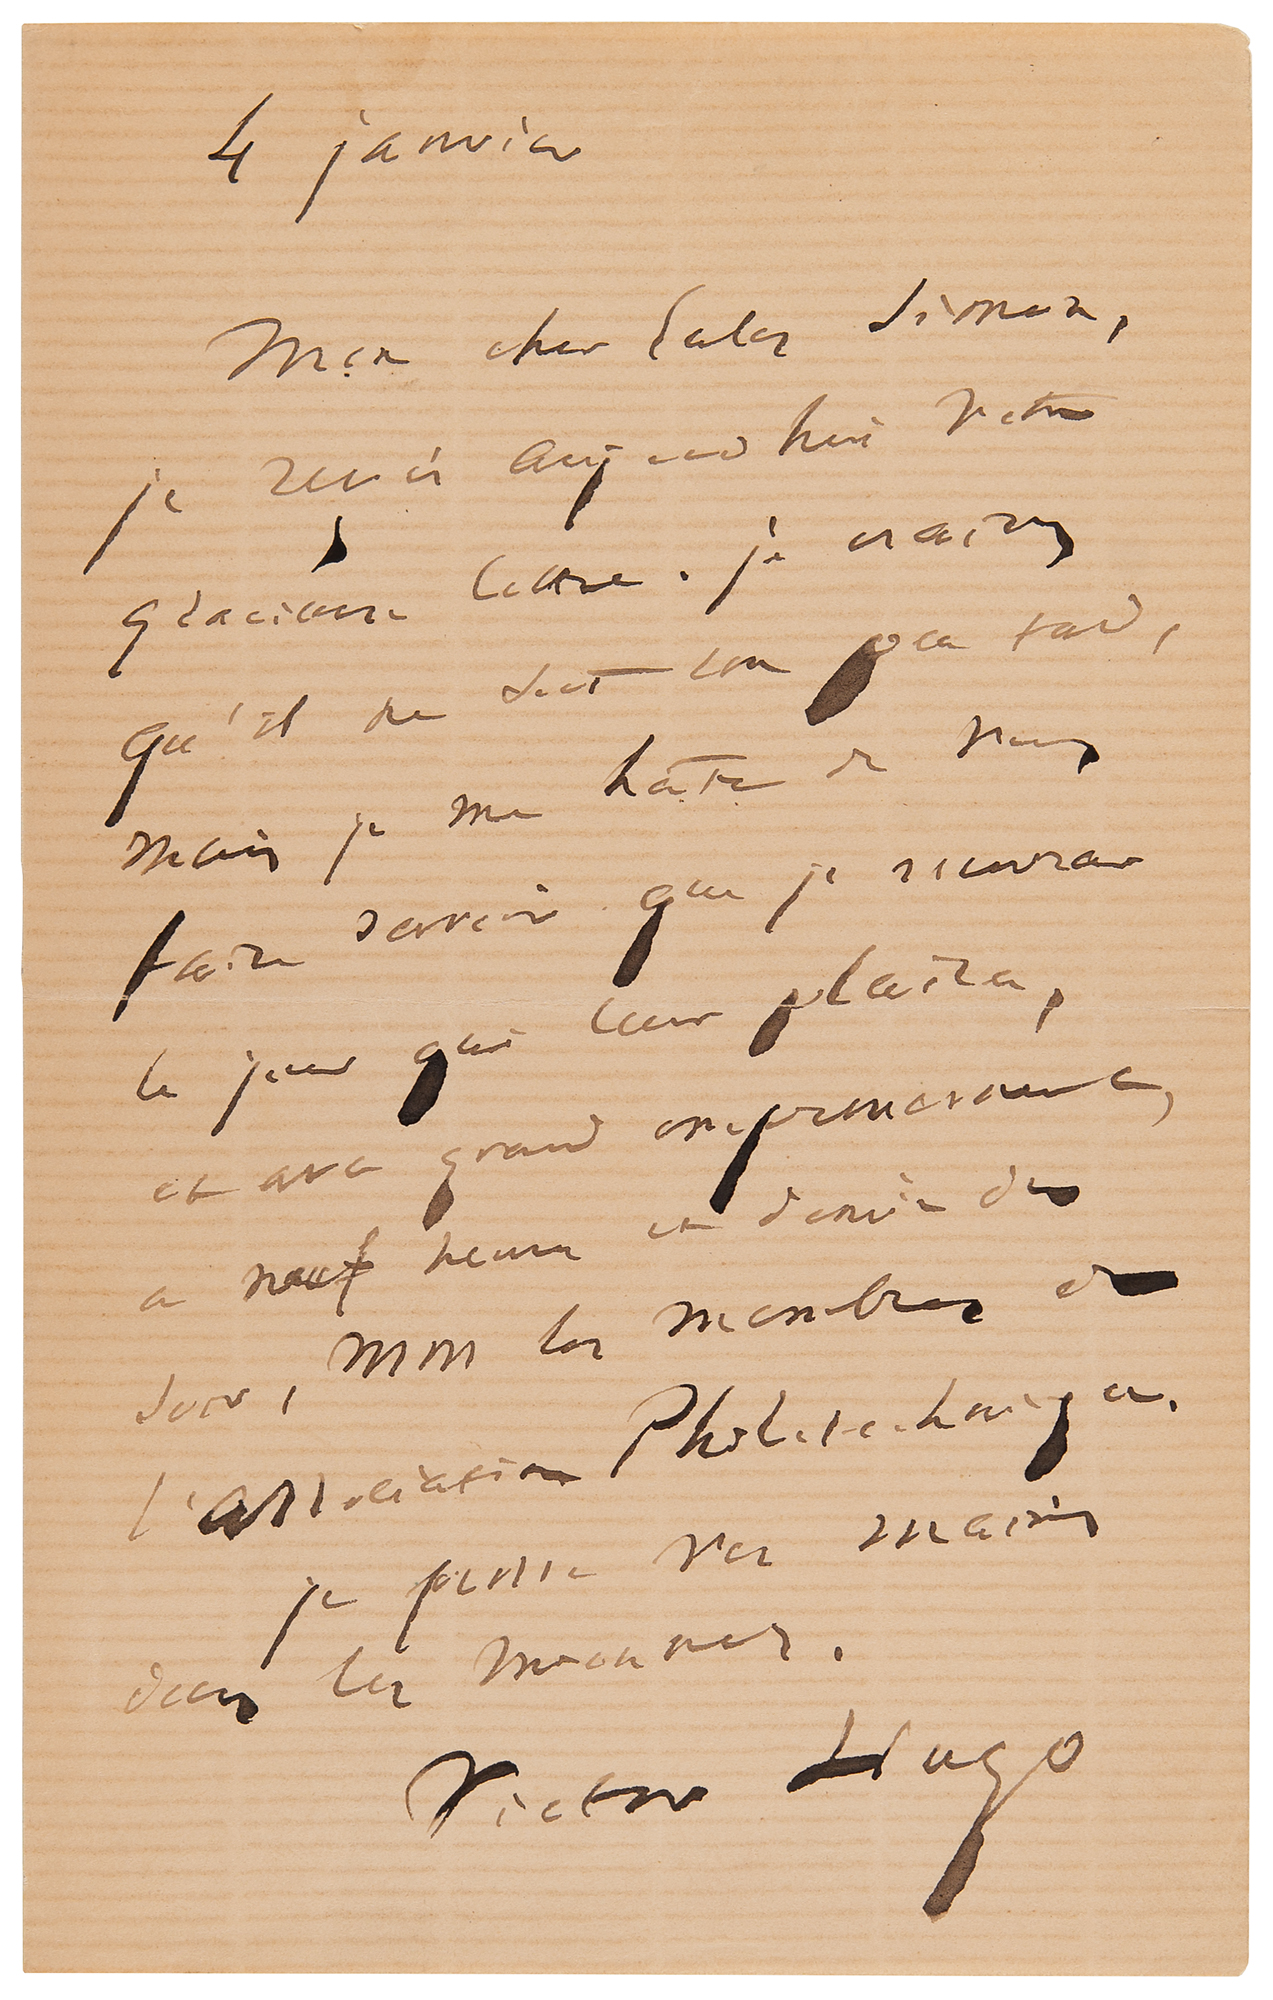 4 janvier
Mon cher Jules Simon,
je reçois aujourd'hui votre
gracieuse lettre. je crains
qu'il ne soit un peu tard,
mais je me hâte de vous
faire savoir que je recevrai
le jour qui leur plaira,
et avec grand empressement,
a neuf heures et demie du
soir, MM les membres de
l'association Philotechnique.
je presse vos mains
dans les miennes.
Victor Hugo